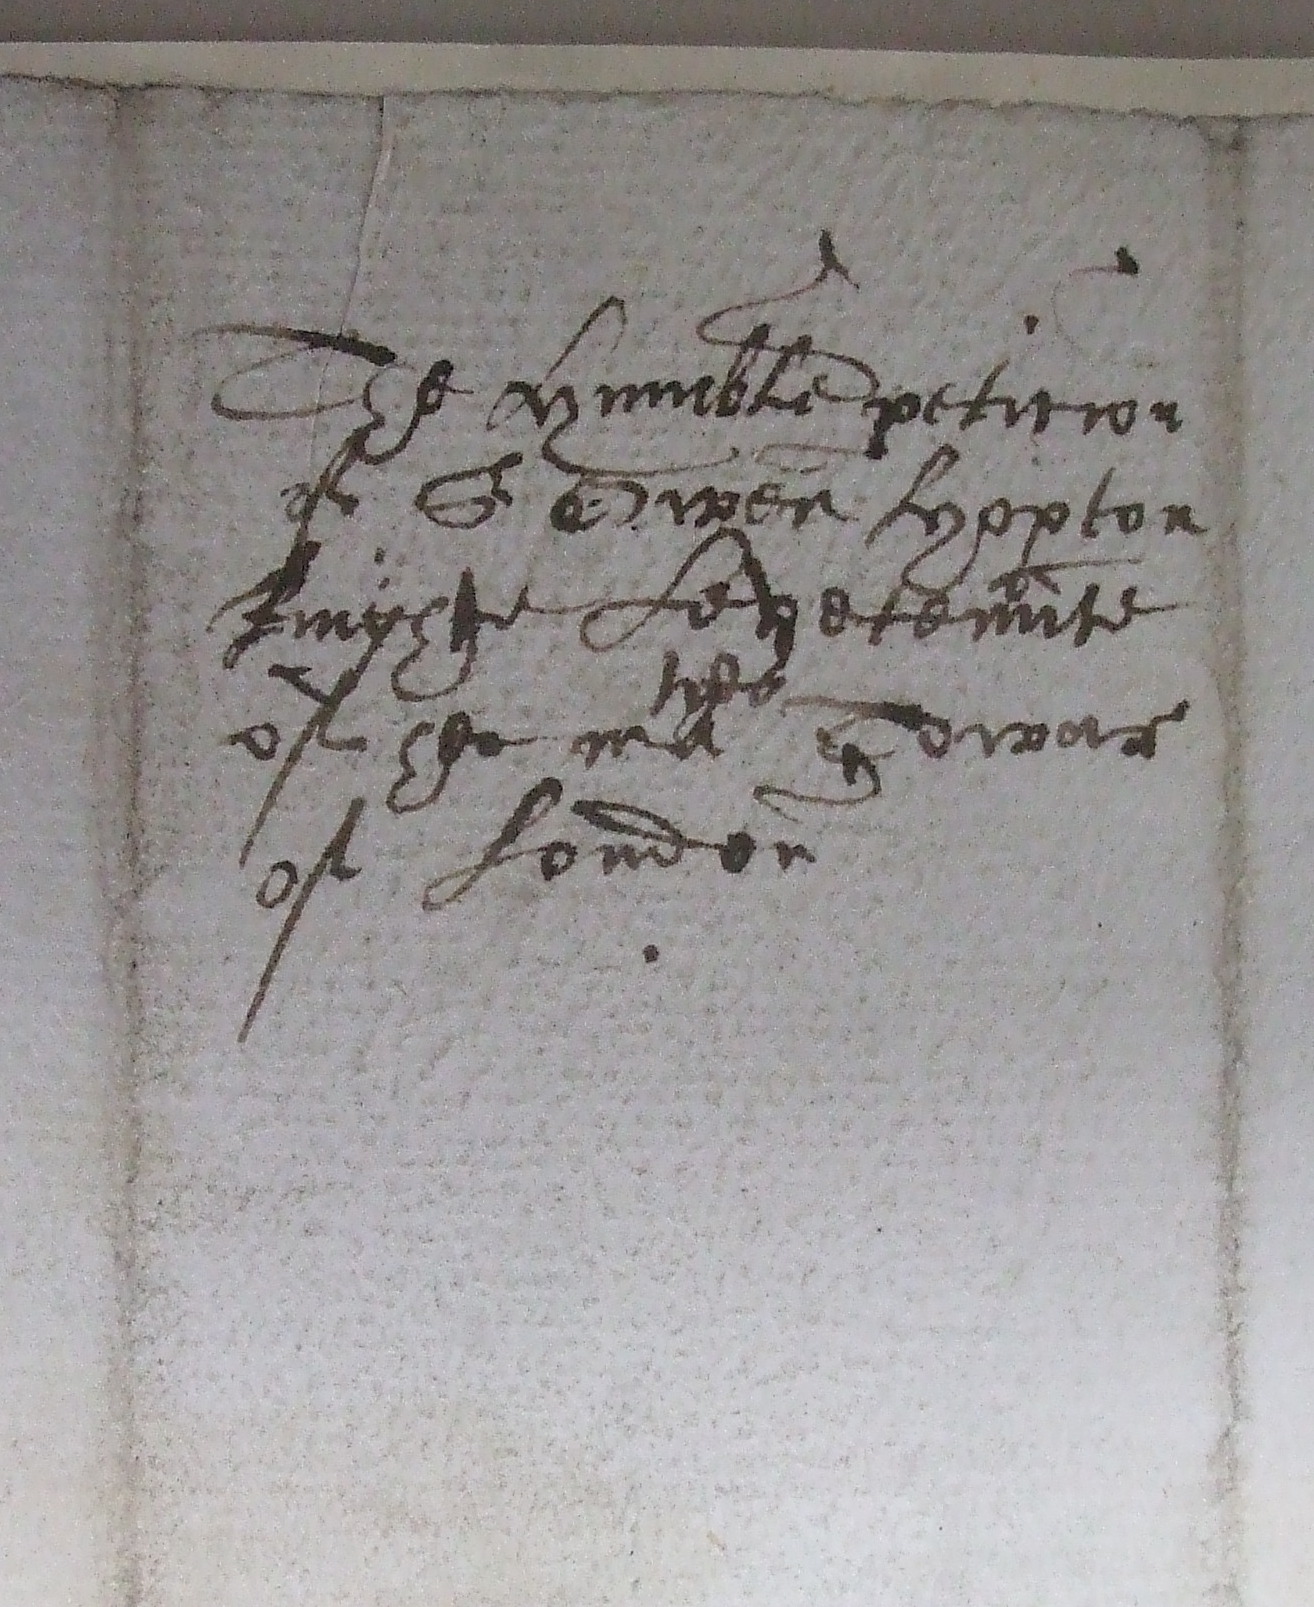 The humble petition
of Sr Owen hopton
knyght Levetennte
of the ma ties Towar
of London